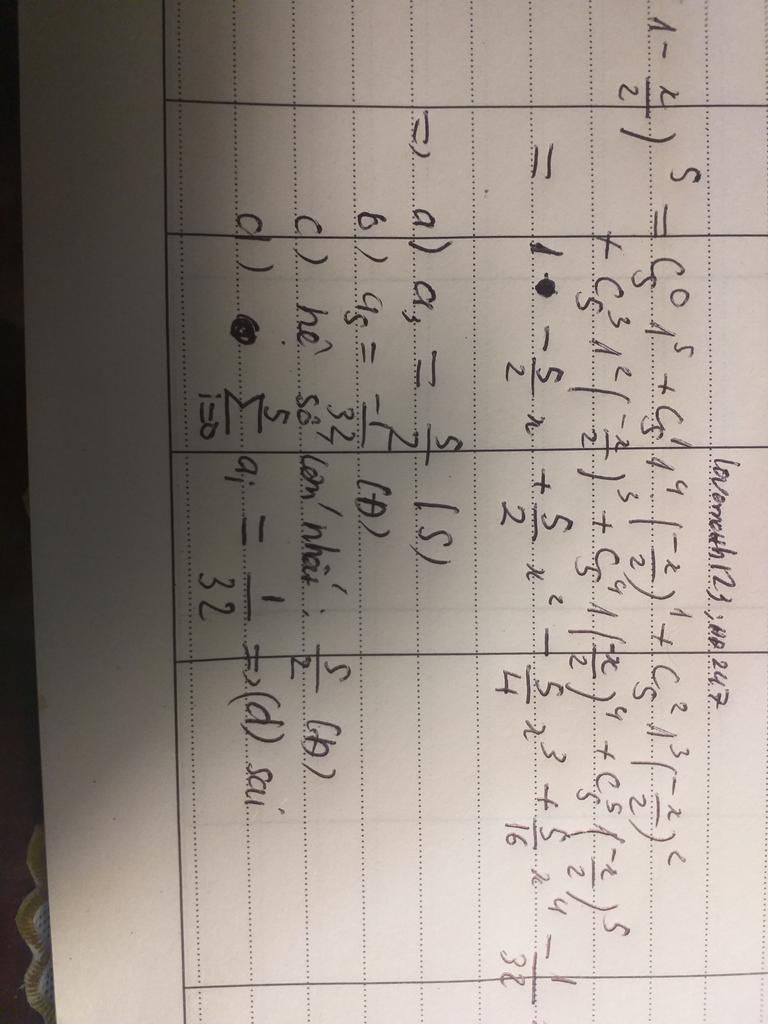 lovemath123; HB 247
1 - x/2)^5 = C_5^0 1^5 + C_5^1 1^4 (-x/2)^1 + C_5^2 1^3 (-x/2)^2
+ C_5^3 1^2 (-x/2)^3 + C_5^4 1 (-x/2)^4 + C_5^5 (-x/2)^5
= 1 - 5/2 x + 5/2 x^2 - 5/4 x^3 + 5/16 x^4 - 1/32
=> a) a_3 = 5/2 (S)
b) a_5 = -1/32 (Đ)
c) hệ số lớn nhất: 5/2 (Đ)
d) ∑_{i=0}^5 a_i = 1/32 => (d) sai